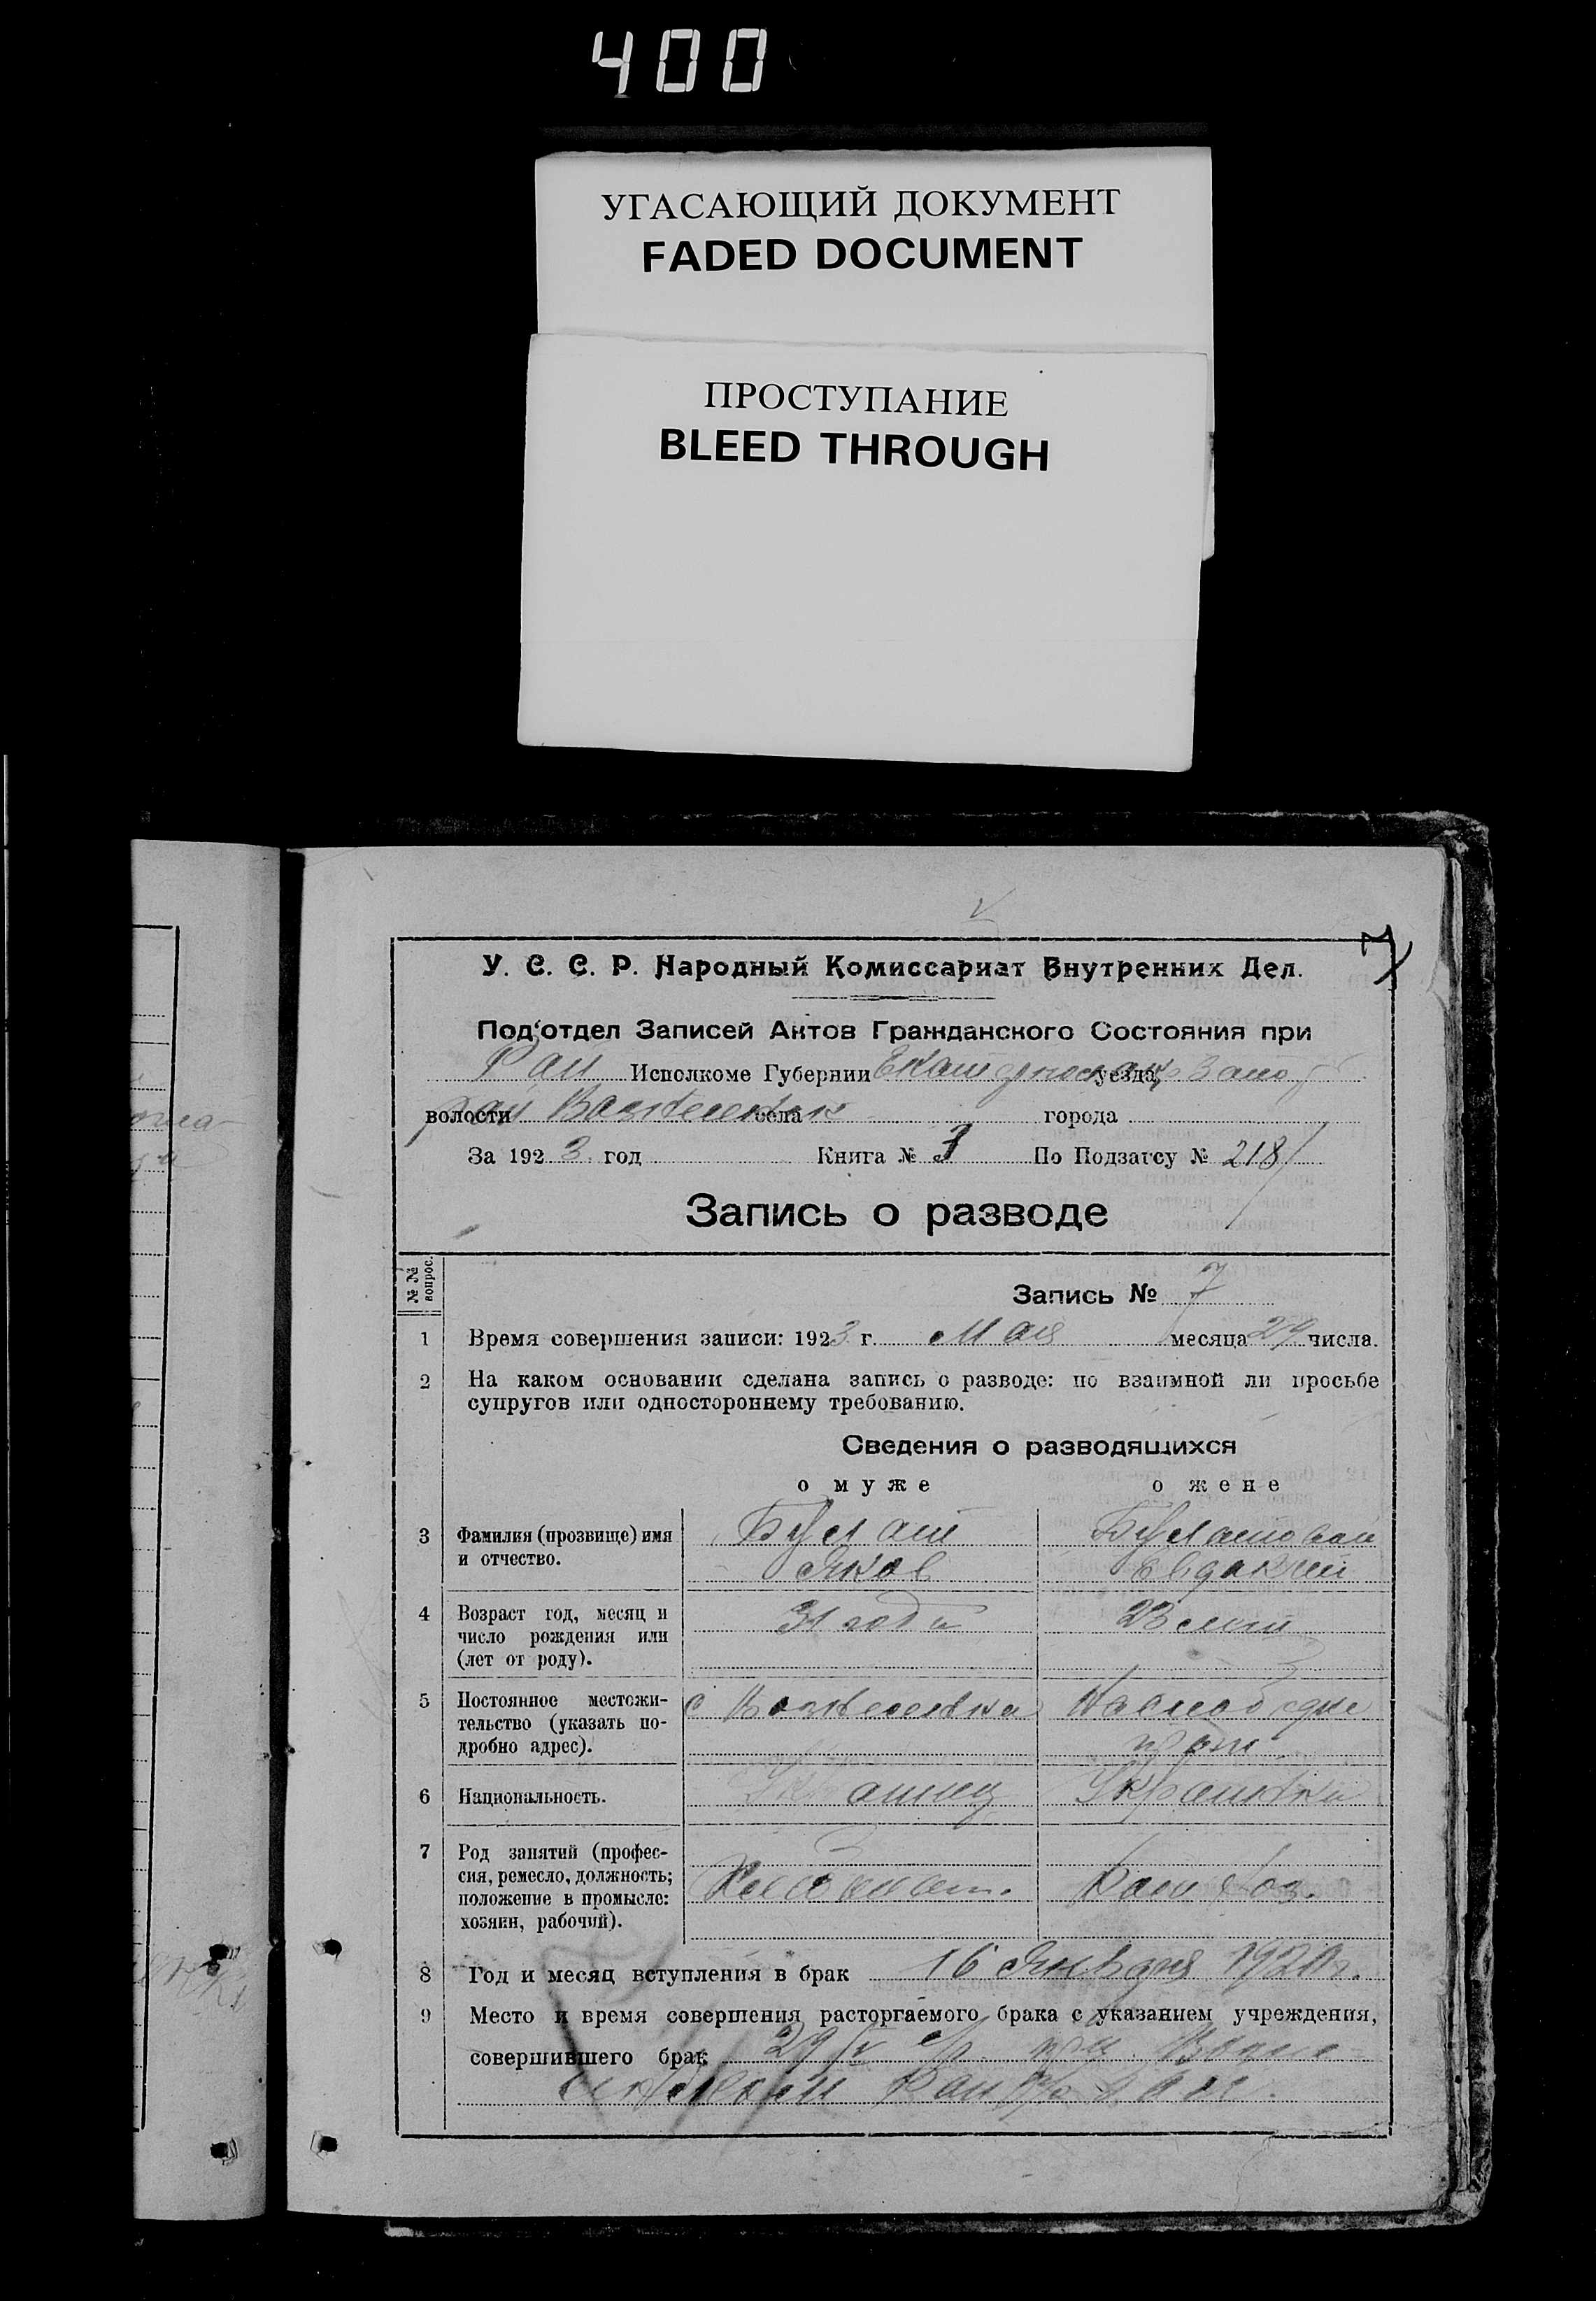 400
УГАСАЮЩИЙ ДОКУМЕНТ
FADED DOCUMENT
ПРОСТУПАНИЕ
BLEED THROUGH
7
У. С. С. Р. Народный Комиссариат Внутренних Дел.
Под'отдел Записей Актов Гражданского Состояния при
Рай Исполкоме Губернии уезда
волости села города
За 1923 год Книга № 3 По Подзагсу № 218
Запись о разводе
№ № вопрос.
Запись № 7
1 Время совершения записи: 1923 г. Мая месяца 29 числа.
2 На каком основании сделана запись о разводе: по взаимной ли просьбе
супругов или одностороннему требованию.
Сведения о разводящихся
о муже о жене
3 Фамилия (прозвище) имя Булат Булатовой
и отчество. Яков Евдокии
4 Возраст год, месяц и 31 года 23 лет
число рождения или
(лет от роду).
5 Постоянное местожи- с
тельство (указать по-
дробно адрес).
6 Национальность. Украинка
7 Род занятий (профес-
сия, ремесло, должность; Хлебопаш. Дом хоз.
положение в промысле:
хозяин, рабочий).
8 Год и месяц вступления в брак 16 Января 1920 г.
9 Место и время совершения расторгаемого брака с указанием учреждения,
совершившего брак при